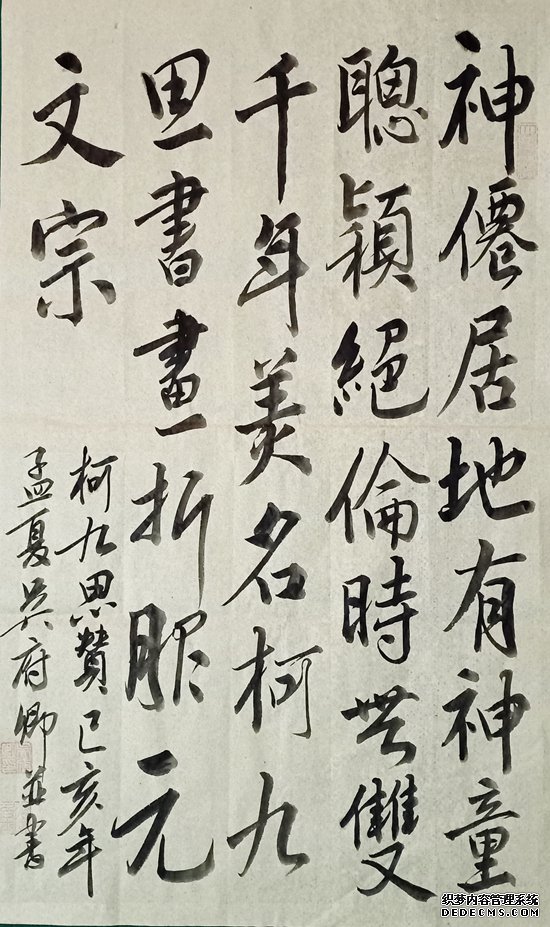 神僊居地有神童
聰穎絕倫時無雙
千年美名柯九
思書畫折服元
文宗
柯九思贊己亥年
孟夏吳府卿並書
织梦内容管理系统
DEDECMS.COM